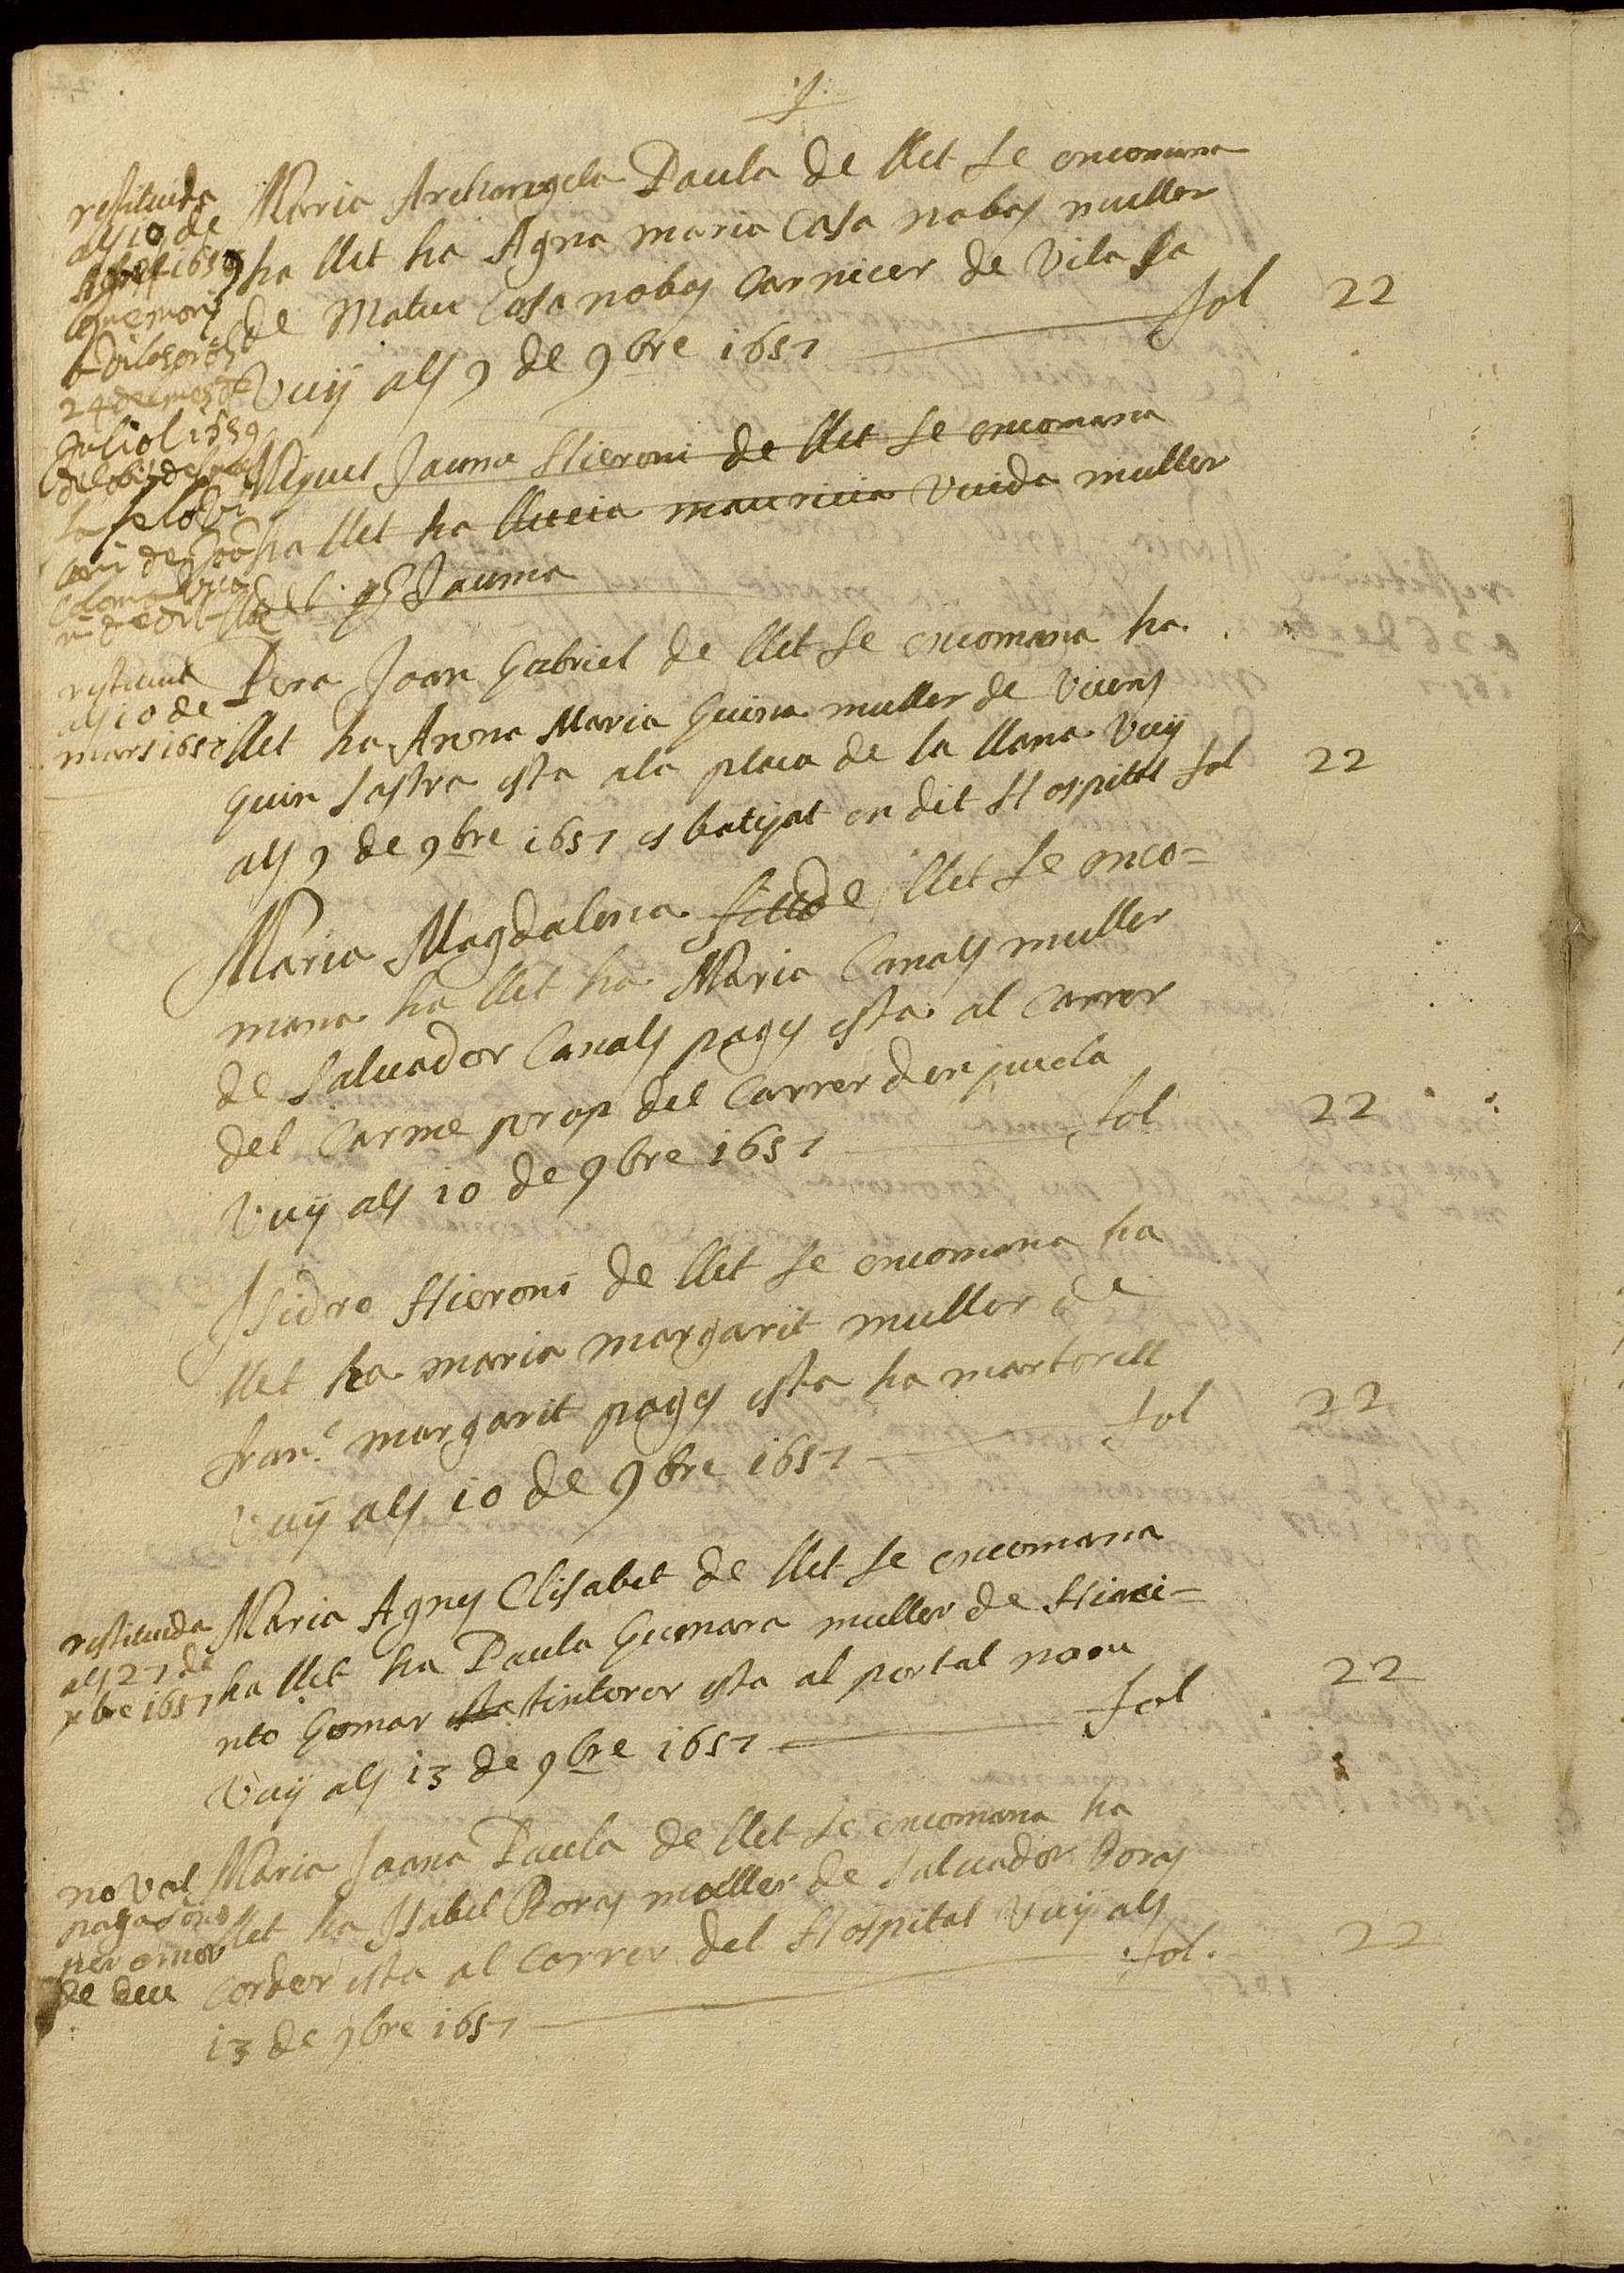 restituida
als 10 de
1659
24 del mes de
Juliol 1659
Maria Archangela Paula de llet se encomana
ha llet ha Agna maria Casa nobas muller
de Matue Casa nobas Carnicer de Vila sa
Vuÿ als 9 de 9bre 1657 fol 22
Miquel Jauma Hieroni de llet se encomana
ha llet ha llueia mauricia Vuida muller
Jauma
restituit
als 10 de
mars 1658
Pera Joan Gabriel de llet se encomana ha
llet ha Anna Maria Guina muller de Vicens
Guin sastra esta ala placa de la llana Vuÿ
als 9 de 9bre 1657 es batejat en dit Hospital fol 22
Maria Magdalena de llet se enco=
mana ha llet ha Maria Canals muller
de Saluador Canals pages esta al Carrer
del Carme prop del Carrer den jucla
Vuÿ als 10 de 9bre 1657 fol 22
Isidro Hieroni de llet se encomana ha
llet ha maria margarit muller de
fran.c margarit pages esta ha martorell
Vuÿ als 10 de 9bre 1657 fol 22
restituida
als 27 de
xbre 1657
Maria Agnes Elisabet de llet se encomana
ha llet ha Paula Gumara muller de Hiaci=
nto Gomar esta tintorer esta al portal nou
Vuÿ als 13 de 9bre 1657 fol 22
no Vol
paga sino
per amor
de deu
Maria Joana Paula de llet se encomana ha
llet ha Isabel Boras muller de Saluador Boras
Corder esta al Carrer del Hospital Vuÿ als
13 de 9bre 1657 fol. 22